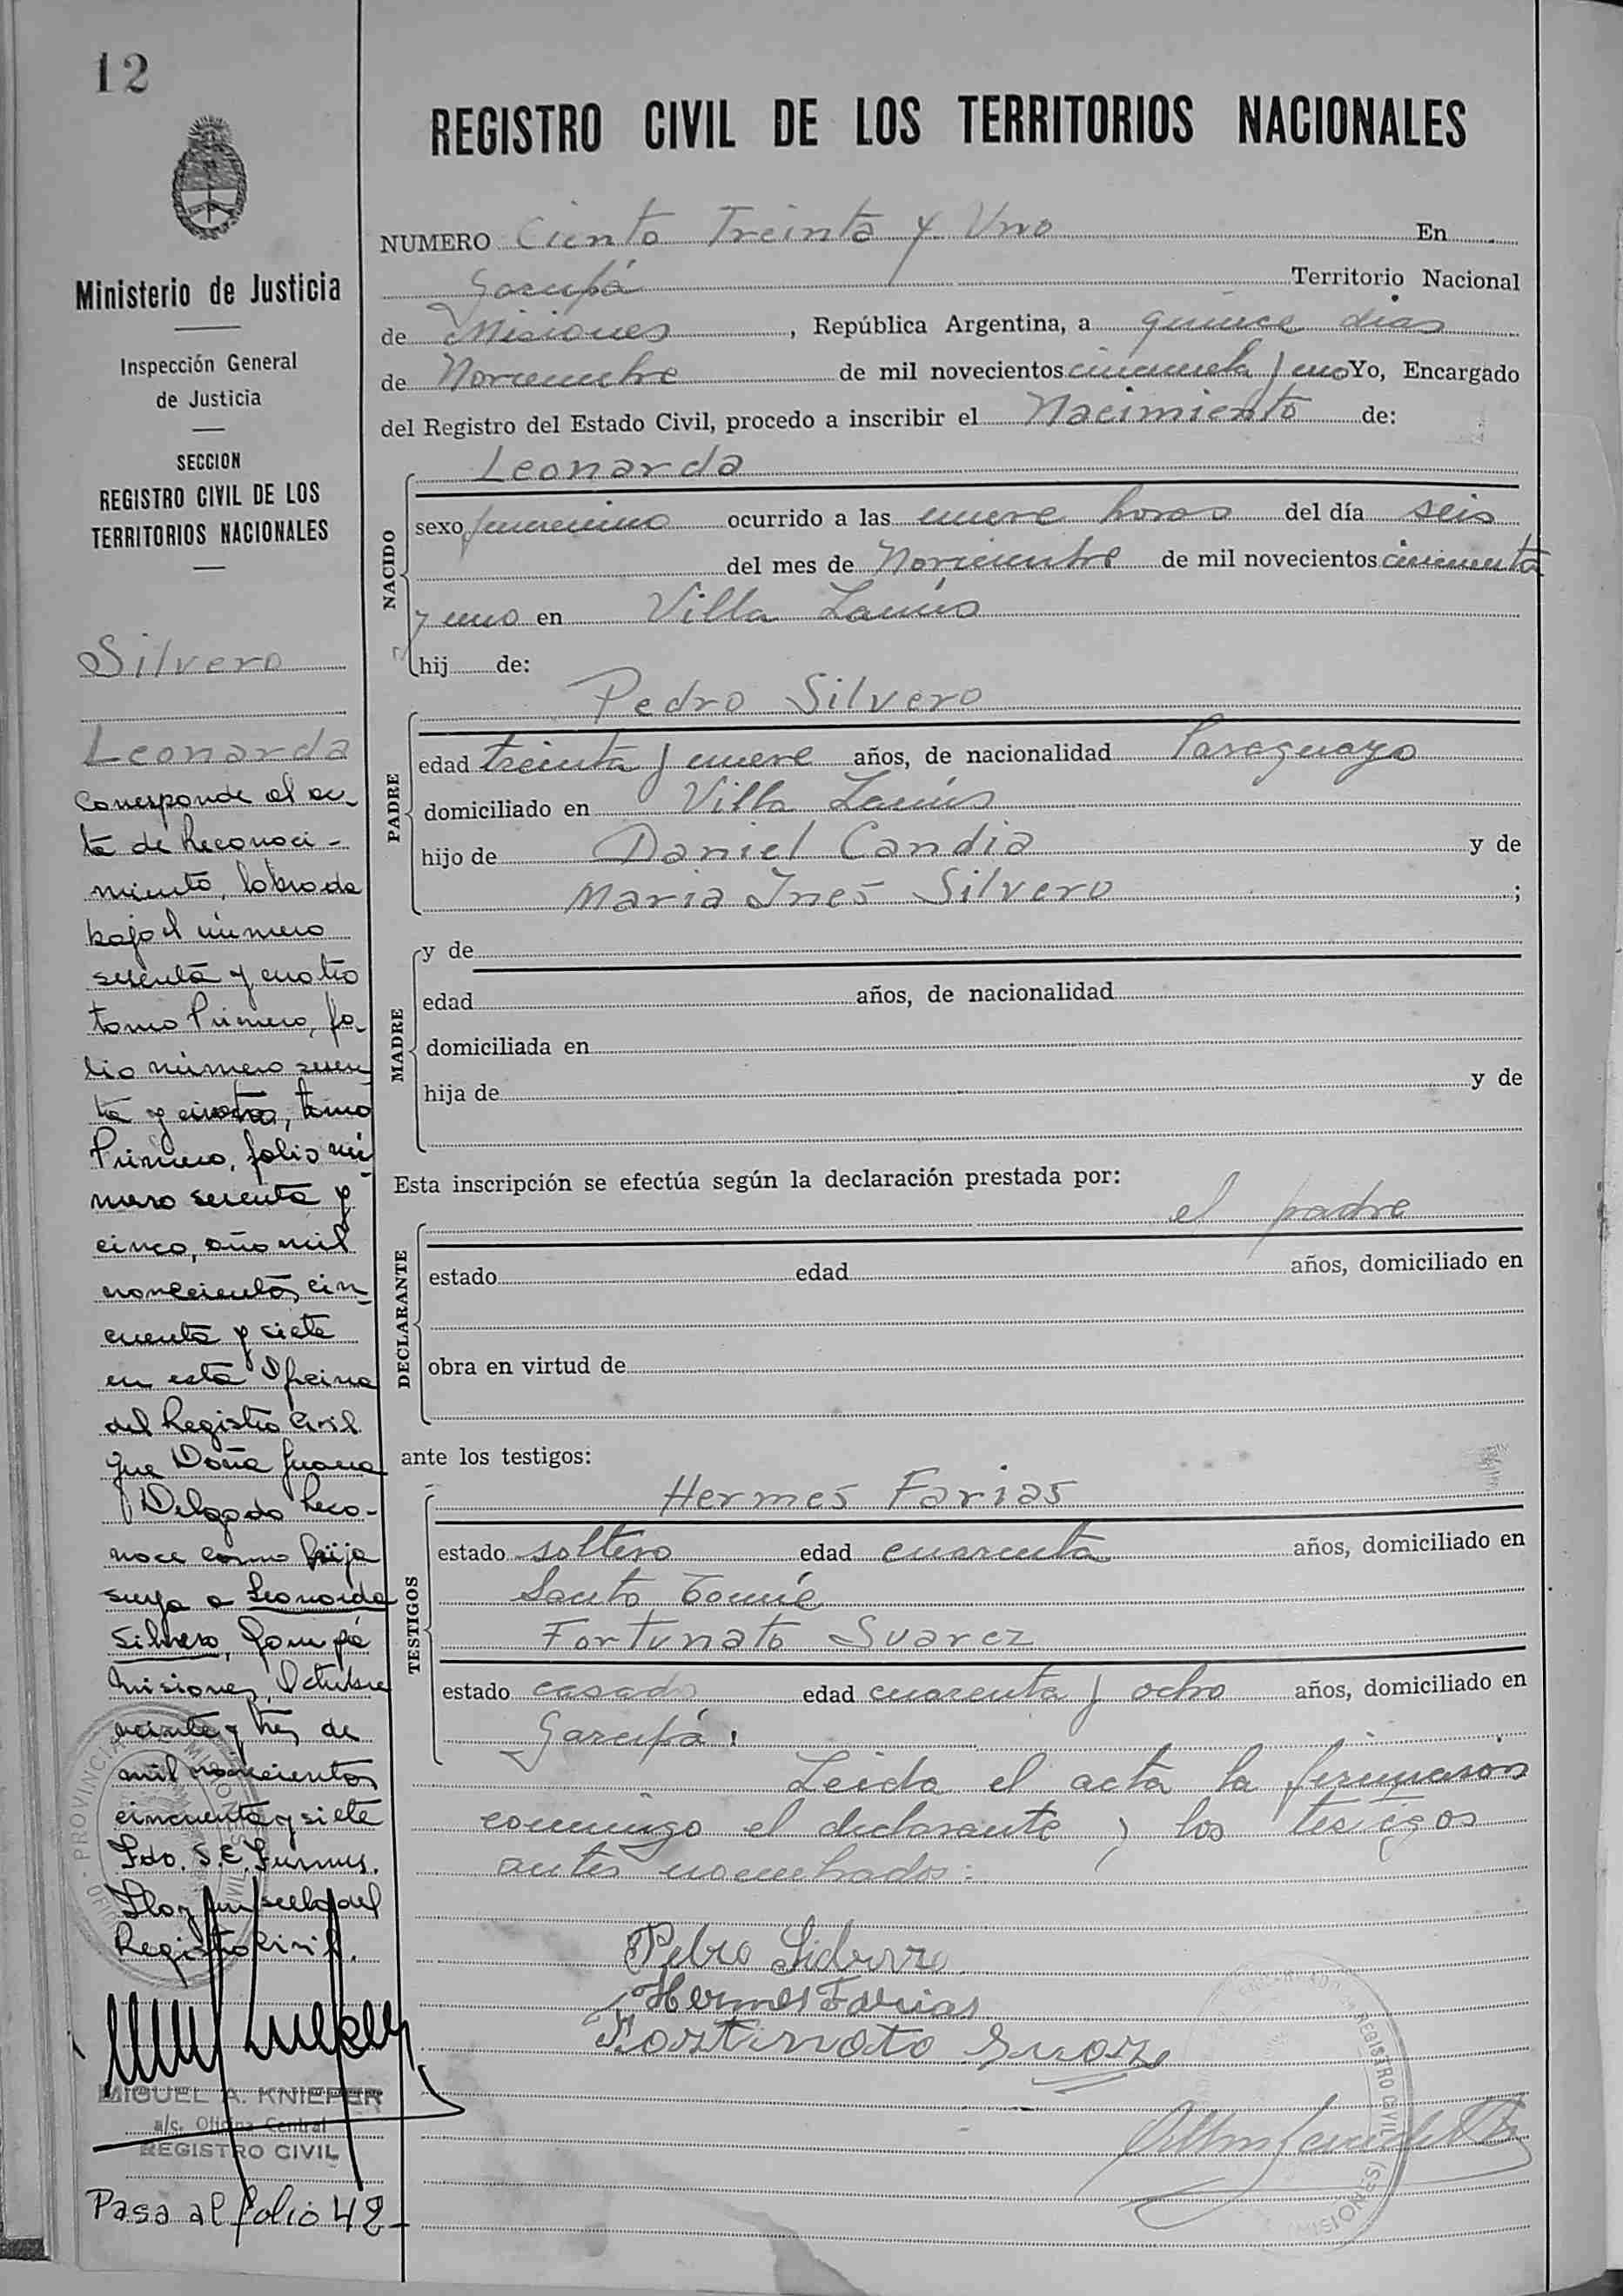 12
REGISTRO CIVIL DE LOS TERRITORIOS NACIONALES
Ministerio de Justicia
Inspección General
de Justicia
SECCION
REGISTRO CIVIL DE LOS
TERRITORIOS NACIONALES
Silvero
Leonarda
Corresponde al ac-
ta de Reconoci-
miento, labrada
bajo el número
sesenta y cuatro
tomo Primero, fo-
lio número sesen-
ta y cuatro, tomo
Primero, folio nú-
mero sesenta y
cinco, año mil
novecientos cin-
cuenta y siete
en esta Oficina
del Registro Civil
que Doña Juana
Delgado reco-
noce como hija
suya a Leonarda
Silvero, Garupá
Misiones, Octubre
veinte y tres de
mil novecientos
cincuenta y siete
Fdo. S.E.
Hay un sello del
Registro Civil.
MIGUEL A. KNIEPER
a/c. Oficina Central
REGISTRO CIVIL
Pasa al folio 42
NUMERO Ciento Treinta y Uno En
Garupá Territorio Nacional
de Misiones, República Argentina, a quince dias
de Noviembre de mil novecientos cincuenta y uno Yo, Encargado
del Registro del Estado Civil, procedo a inscribir el Nacimiento de:
NACIDO
Leonarda
sexo femenino ocurrido a las nueve horas del día seis
del mes de Noviembre de mil novecientos cincuenta
y uno en Villa Lanús
hij de:
PADRE
Pedro Silvero
edad treinta y nueve años, de nacionalidad Paraguayo
domiciliado en Villa Lanús
hijo de Daniel Candia y de
Maria Inés Silvero ;
MADRE
y de
edad años, de nacionalidad
domiciliada en
hija de y de
Esta inscripción se efectúa según la declaración prestada por:
DECLARANTE
el padre
estado edad años, domiciliado en
obra en virtud de
ante los testigos:
TESTIGOS
Hermes Farias
estado soltero edad cuarenta años, domiciliado en
Santo Tomé
Fortunato Suarez
estado casado edad cuarenta y ocho años, domiciliado en
Garupá.
Leida el acta la firmaron
conmigo el declarante y los testigos
antes nombrados:
Hermes Farias